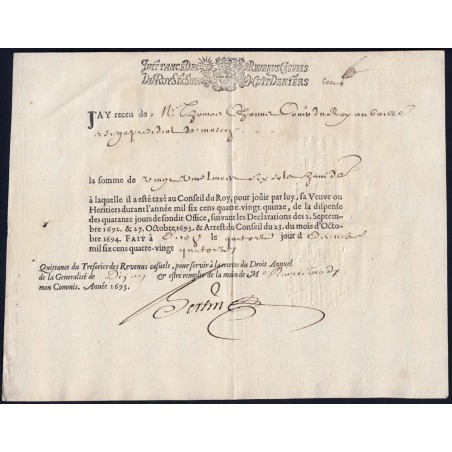 QUITTANCE DES REVENUS CASUELS
DU ROY SIX SOLS HUIT DENIERS
J'AY receu de Mr Thomas Conser du Roy au
la somme de vingt une livres six sols huict d
à laquelle il a esté taxé au Conseil du Roy, pour joüir par luy, sa Veuve ou
Heritiers durant l'année mil six cens quatre-vingt-quinze, de la dispense
des quarante jours de sondit Office, suivant les Declarations des 2. Septembre
1692. & 27. Octobre 1693. & Arrest du Conseil du 23. du mois d'Octobre
1694. FAIT à Dijon le quatorze jour de
mil six cens quatre-vingt quatorze
Quittance du Tresorier des Revenus casuels, pour servir à la recette du Droit Annuel
de la Generalité de Dijon & estre remplie de la main de Me
mon Commis. Année 1695.
Bertin